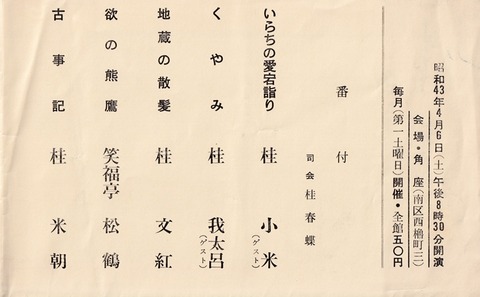 昭和43年4月6日(土)午後8時30分開演
会場・角座(南区西櫓町三)
毎月(第一土曜日)開催・全館五〇円
番付
司会 桂春蝶
いらちの愛宕詣り 桂 小米(ゲスト)
くやみ 桂 我太呂(ゲスト)
地蔵の散髪 桂 文紅
欲の熊鷹 笑福亭 松鶴
古事記 桂 米朝